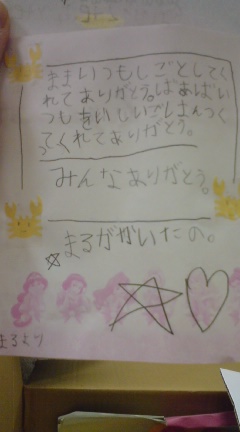 ままいつもしごとしてく
れてありがとう。ばあばい
つもをいしいごはんつく
ってくれてありがとう。
みんなありがとう。
まるががいたの。
まるより